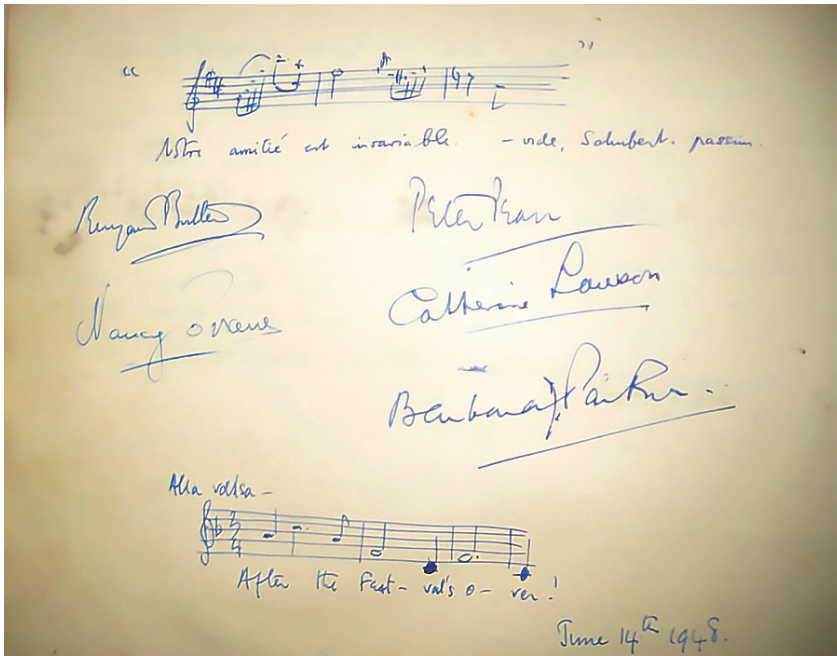 " "
Notre amitié est invariable. – vide, Schubert. passim.
Benjamin Britten Peter Pears
Nancy Evans Catherine Lawson
Barbara Parker.
Alla valsa –
3 4
After the Fest- val's o- ver!
June 14th 1948.